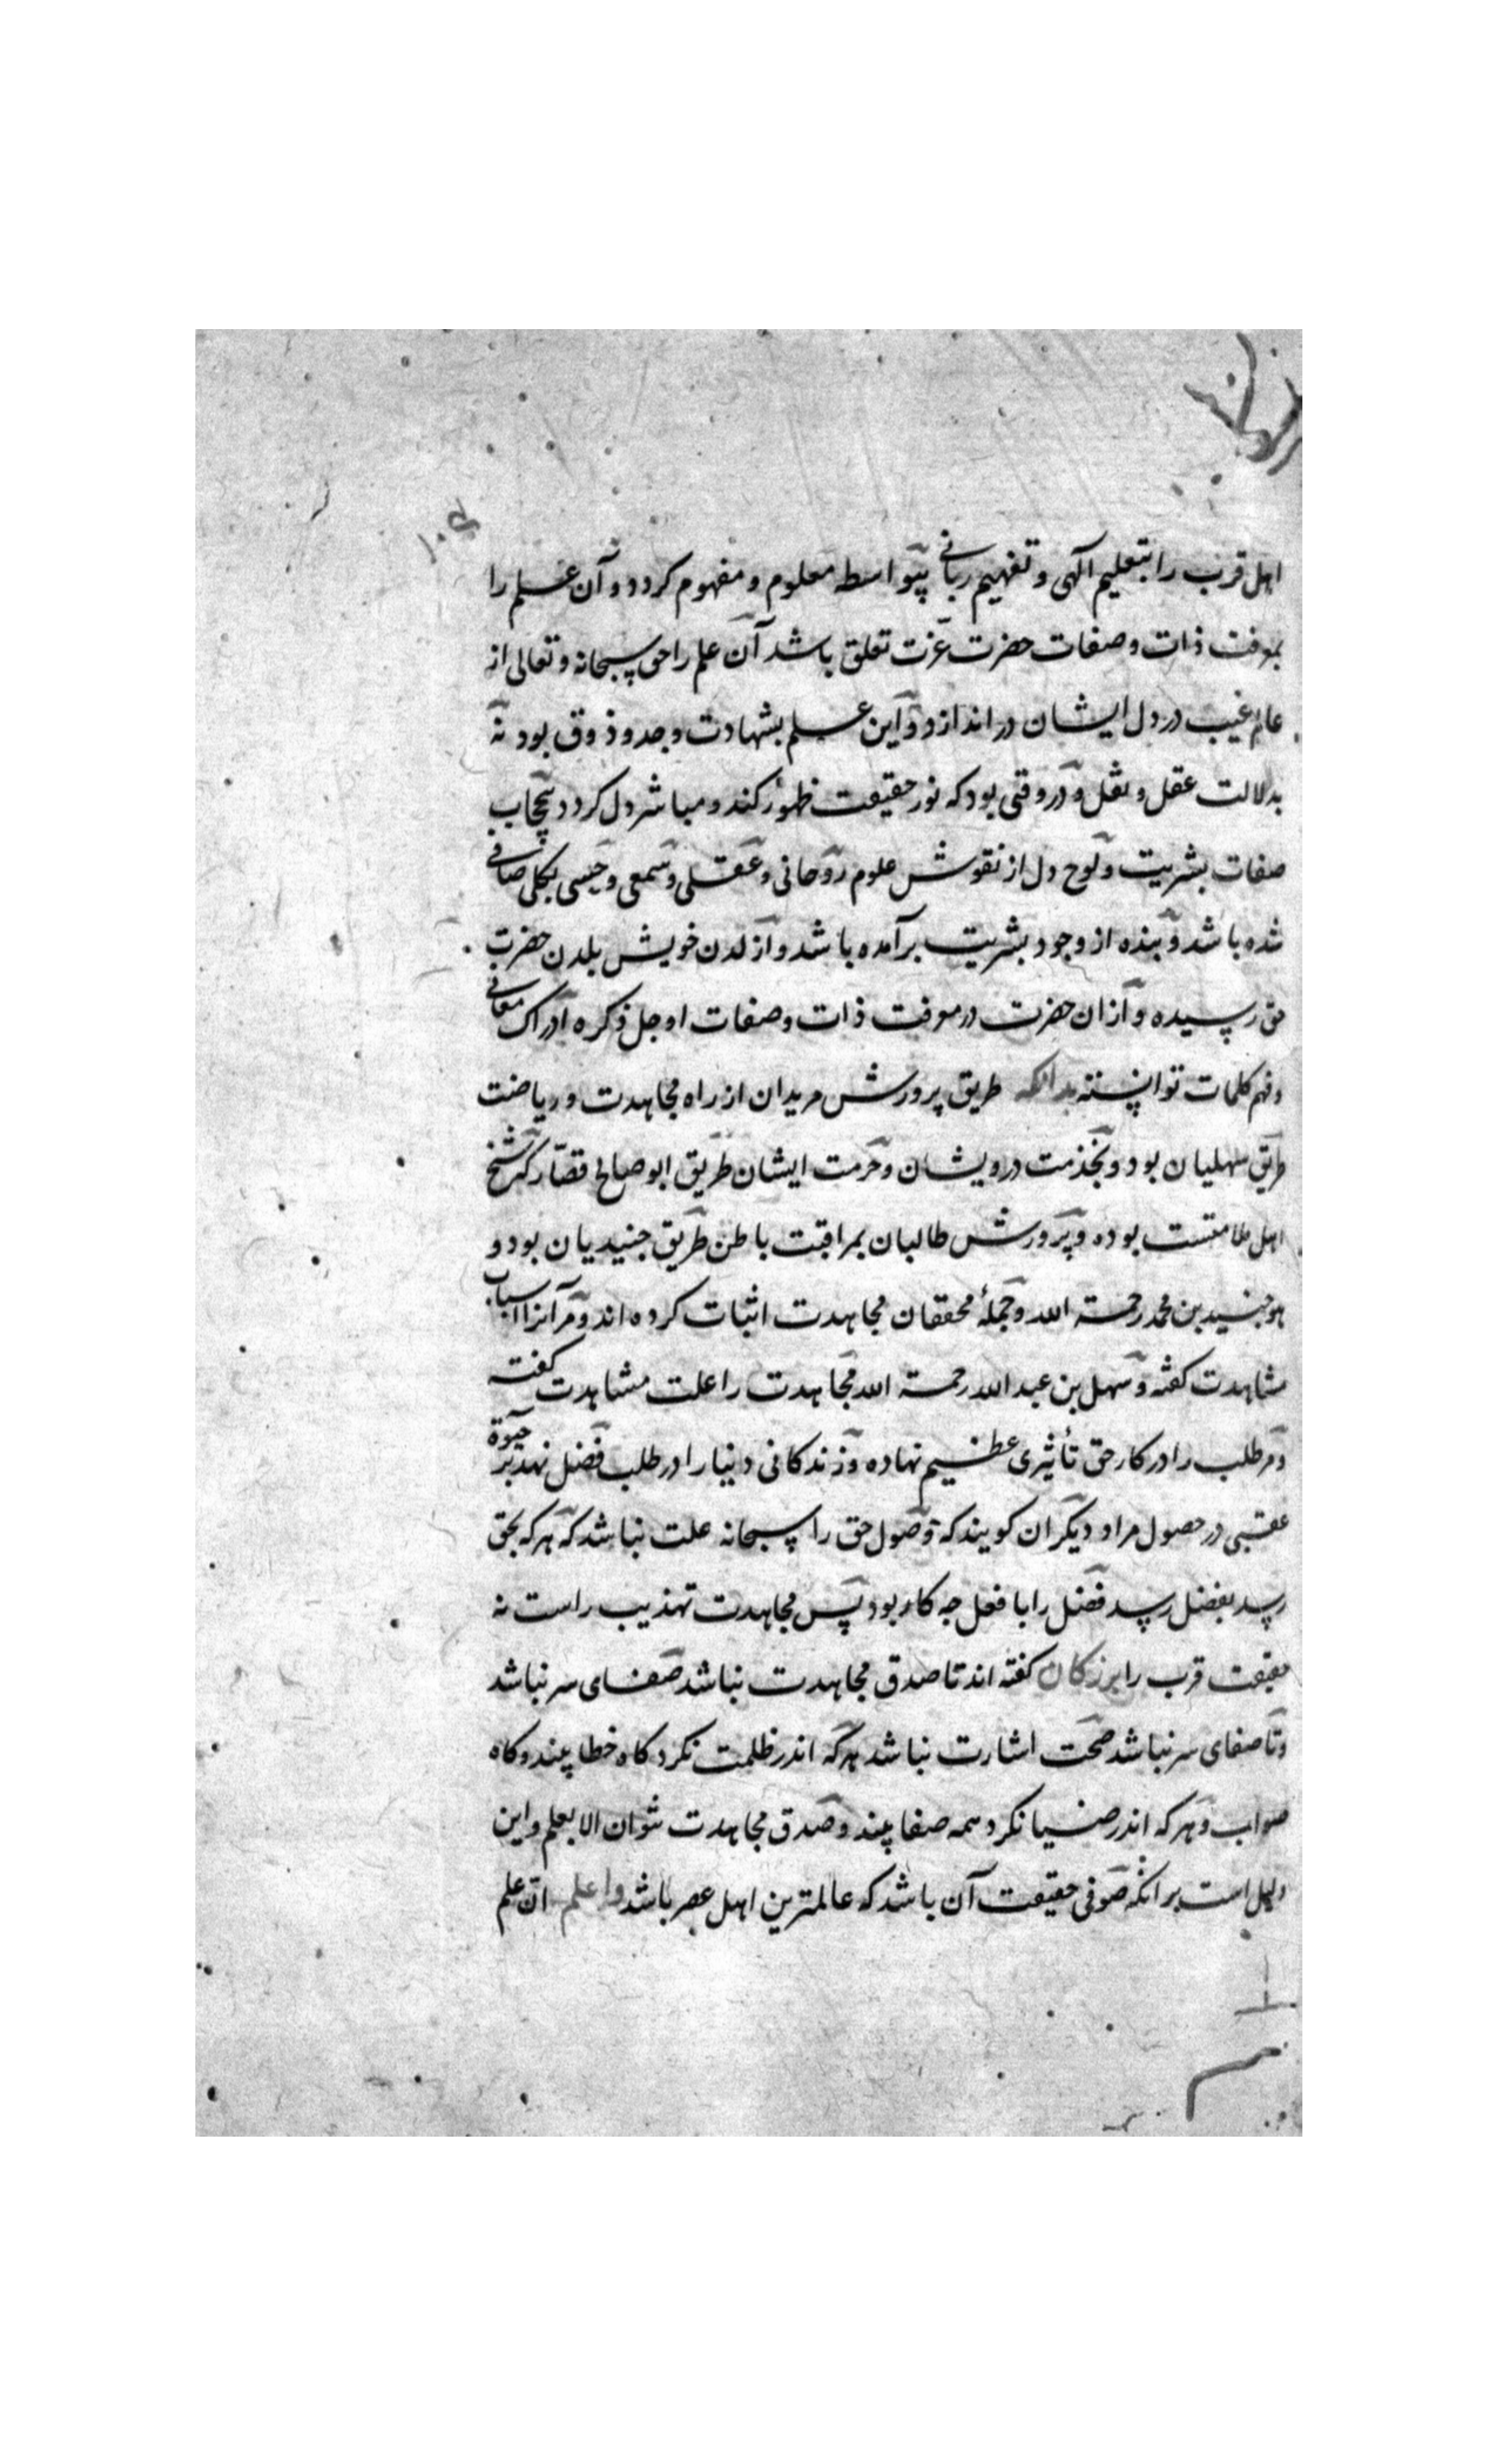 اهل قرب را بتعلیم الهی و تفهیم ربانی بیواسطه معلوم و مفهوم کردد و آن علم را
بمعرفت ذات و صفات حضرت عزت تعلق باشد آن علم را حق سبحانه و تعالی از
عالم غیب در دل ایشان در اندازد و این علم بشهادت وجد و ذوق بود نه
بدلالت عقل و نقل و در وقتی بود که نور حقیقت ظهور کند و مباشر دل کردد بیحجاب
صفات بشریت و لوح دل از نقوش علوم روحانی و عقلی و سمعی و حسی بکلی صافی
شده باشد و بنده از وجود بشریت برآمده باشد و از لدن خویش بلدن حضرت
حق رسیده و از ان حضرت در معرفت ذات و صفات او جل ذکره ادراک معانی
و فهم کلمات توانسته بدانکه طریق پرورش مریدان از راه مجاهدت و ریاضت
طریق سهلیان بود و بخدمت درویشان و حرمت ایشان طریق ابو صالح قصار که شیخ
اهل ملامتست بوده و پرورش طالبان بمراقبت باطن طریق جنیدیان بود و
هو جنید بن محمد رحمة الله و جملهٔ محققان مجاهدت اثبات کرده اند و مر آنرا اسباب
مشاهدت کفته و سهل بن عبد الله رحمة الله مجاهدت را علت مشاهدت کفته
و مر طلب را در کار حق تأثیری عظیم نهاده و زندکانی دنیا را در طلب فضل نهد بر حیوة
عقبی در حصول مراد دیکران کویند که وصول حق را سبحانه علت نباشد که هر که بحق
رسد بفضل رسد فضل را با فعل چه کار بود پس مجاهدت تهذیب راست نه
حقیقت قرب را بزرکان کفته اند تا صدق مجاهدت نباشد صفای سر نباشد
و تا صفای سر نباشد صحت اشارت نباشد هر که اندر ظلمت نکرد کاه خطا بیند و کاه
صواب و هر که اندر ضیا نکرد همه صفا بیند و صدق مجاهدت نتوان الا بعلم و این
دلیل است بر انکه صوفی حقیقت آن باشد که عالمترین اهل عصر باشد واعلم ان علم